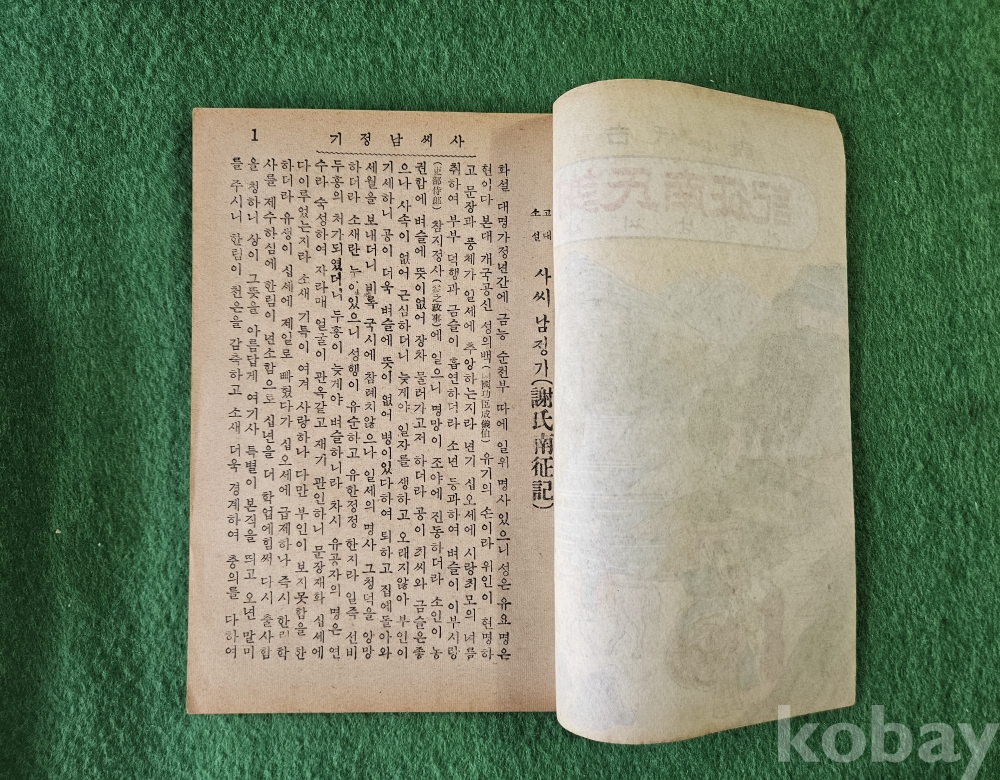 사씨남정기
1
고대
소설
사씨남정가(謝氏南征記)
화설 대명가정년간에 금능 순천부 따에 일위 명사 있으니 성은 유요 명은
현이다 본대 개국공신 성의백(國功臣成儀伯) 유기의 손이라 위인이 현명하
고 문장과 풍체가 일세에 추앙하는지라 년기 십오세에 시랑최모의 녀를
취하여 부부 덕행과 금슬이 흡연하더라 소년 등과하여 벼슬이 이부시랑
(吏部侍郞) 참지정사(之政事)에 일으니 명망이 조야에 진동하더라 소인이 농
권함에 벼슬에 뜻이없어 장차 물러가고저 하더라 공이 최씨와 금슬은좋
으나 사속이 없어 근심하더니 늦게야 일자를 생하고 오래지않아 부인이
기세하니 공이 더욱 벼슬에 뜻이 없어 병이있다하여 퇴하고 집에돌아와
세월을 보내더니 비록 국시에 참례치않으나 일세의 명사 그청덕을 앙망
하더라 소새란 누이있으니 성행이 유순하고 유한정정 한지라 일즉 선비
두홍의 처가되였더니 두홍이 늦게야 벼슬하니라 차시 유공자의 명은 연
수라 숙성하여 자라매 얼굴이 관옥같고 재기 관인하니 문장재화 십세에
다이루었는지라 소새 기특이 여겨 사랑하나 다만 부인이 보지못함을 한
하더라 유생이 십세에 제일로 빠혔다가 십오세에 급제하나 즉시 한림학
사를 제수하심에 한림이 년소함으로 십년을 더 학업에힘써 다시 출사함
을 청하니 상이 그뜻을 아름답게 여기사 특별이 본직을 띄고 오년 말미
를 주시니 한림이 천은을 감축하고 소새 더욱 경계하여 충의를 다하여
kobay